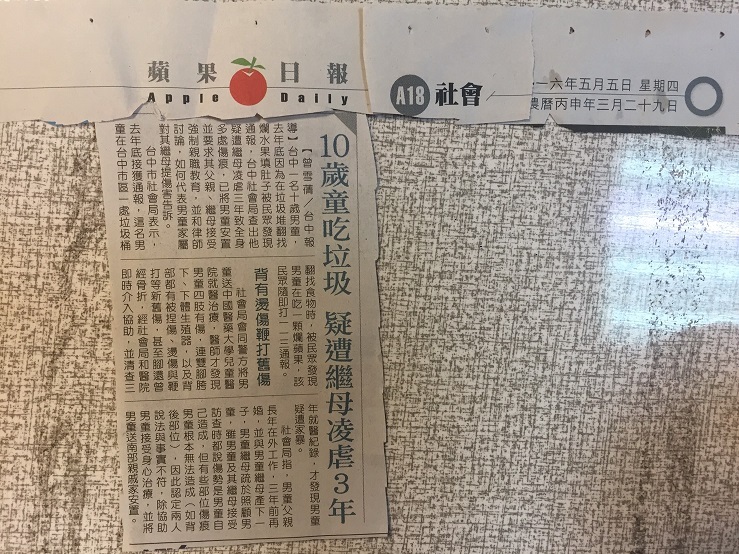 蘋果日報
Apple Daily
A18 社會
一六年五月五日 星期四
農曆丙申年三月二十九日
10歲童吃垃圾 疑遭繼母凌虐3年
【曾雪蒨／台中報
導】台中一名十歲男童，
去年底因為在垃圾堆翻找
爛水果填肚子被民眾發現
通報，台中社會局查出他
疑遭繼母凌虐三年致全身
多處傷痕，已將男童安置
並要求其父親、繼母接受
強制親職教育，並和律師
討論，如何代表男童家屬
對其繼母提傷害告訴。
台中市社會局表示，
去年底接獲通報，這名男
童在台中市區一處垃圾桶
翻找食物時，被民眾發現
男童在吃一顆爛蘋果，該
民眾隨即打一一三通報。
背有燙傷鞭打舊傷
社會局會同警方將男
童送中國醫藥大學兒童醫
院就醫治療，醫師才發現
男童四肢有傷，連雙腳胯
下、下體生殖器，以及背
部都有被捏傷、燙傷與鞭
打等新舊傷，甚至腳還曾
經骨折，經社會局和醫院
即時介入協助，並清查三
年就醫紀錄，才發現男童
疑遭家暴。
社會局指，男童父親
長年在外工作，三年前再
婚，並與男童繼母產下一
子，男童繼母疏於照顧男
童，雖男童及其繼母接受
訪查時都說傷勢是男童自
己造成，但有些部位傷痕
男童根本無法造成（如背
後部位），因此認定兩人
說法與事實不符，除協助
男童接受身心治療，並將
男童送南部親戚家安置。